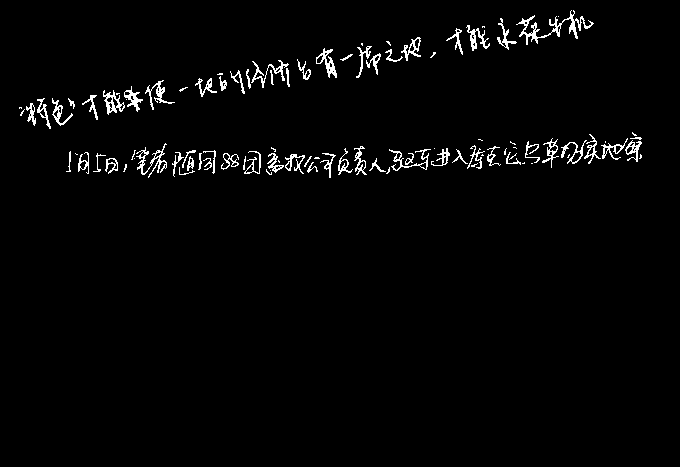 “特色”才能使一地的经济占有一席之地,才能永葆生机
1月5日,笔者随同88团畜牧公司负责人,驱车进入库克它乌草场实地察